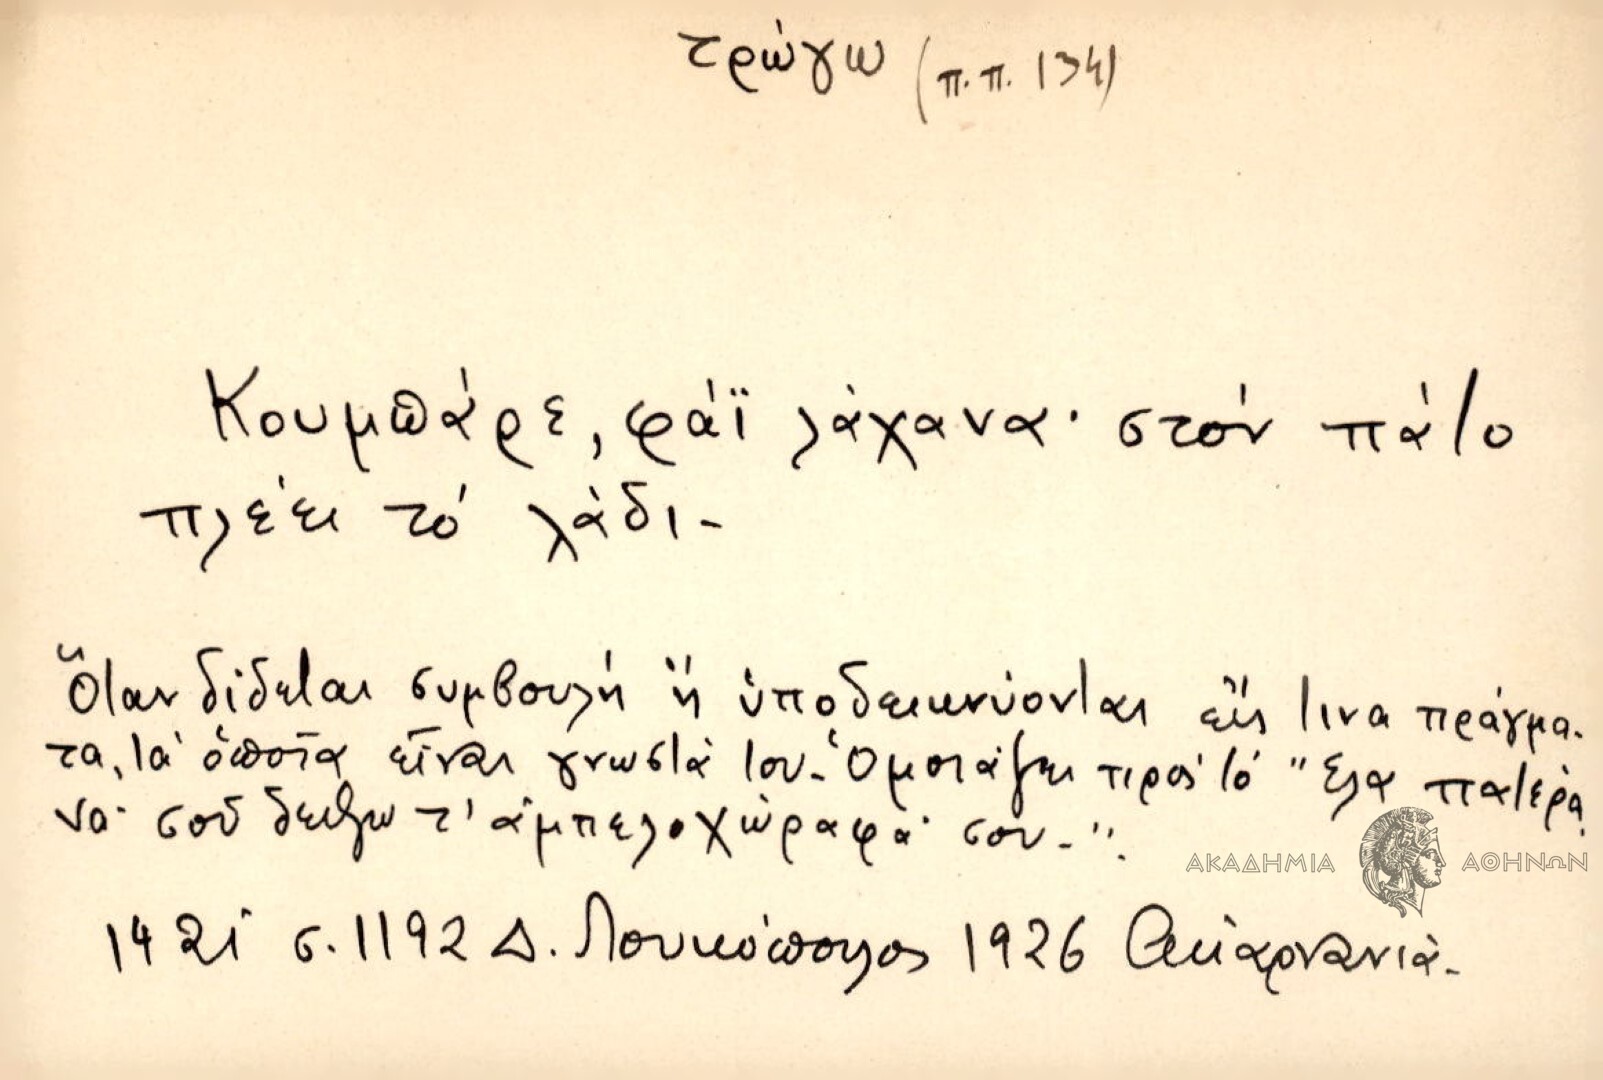 τρώγω (π.π. 134)
Κουμπάρε, φάϊ λάχανα· στόν πάτο
πλέει τό λάδι-
Ὅταν δίδεται συμβουλή ἤ ὑποδεικνύονται εἴς τινα πράγμα-
τα, τά ὁποῖα εἶναι γνωστά του. Ὁμοιάζει πρός τό "Ἔλα πατέρα
νά σοῦ δείξω τ' ἀμπελοχώραφά σου-".
σ. 1192 Δ. Λουκόπουλος 1926 Ἀκαρνανία-
ΑΚΑΔΗΜΙΑ ΑΘΗΝΩΝ